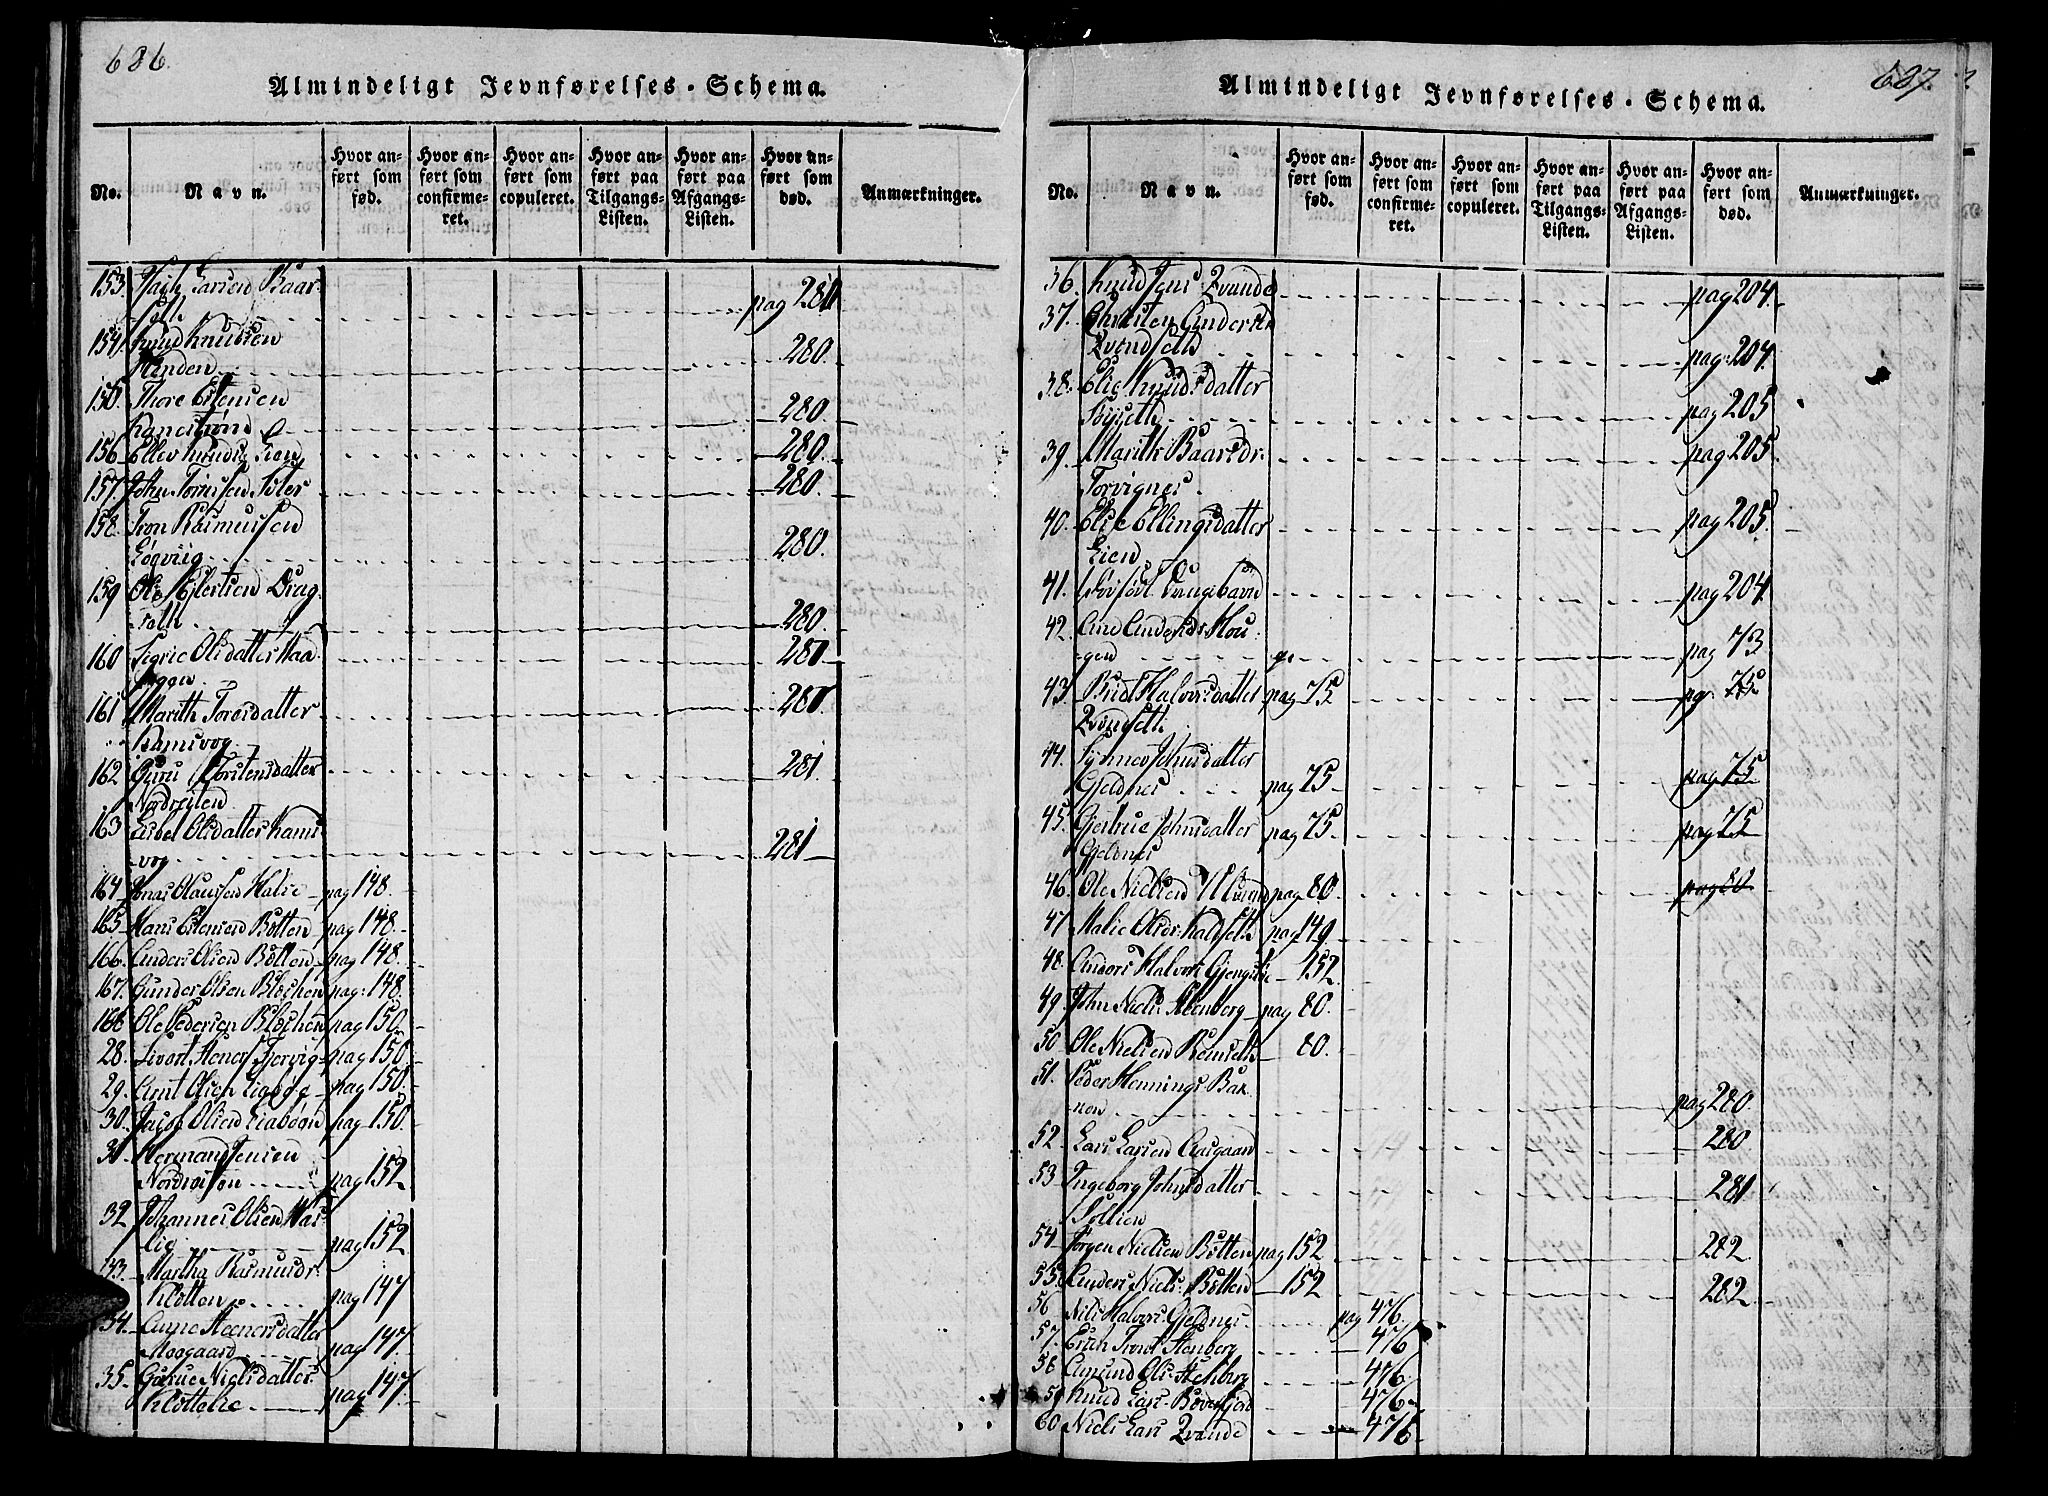 686.
Almindeligt Jevnførelses-Schema.
No.
Navn.
Hvor anført som fød.
Hvor anført som confirmeret.
Hvor anført som copuleret.
Hvor anført paa Tilgangs-Listen.
Hvor anført paa Afgangs-Listen.
Hvor anført som død.
Anmærkninger.
153. Larsen Baar-
seth pag 281
154. Knud Knudsen
Hinden 280.
155. Thore Estensen
280.
156. Ellev Knuds 280.
157. John 280.
158. Iron Rasmussen
280.
159 Ole Drag-
seth 280
160 Sigrie Olsdatter Haa-
gen 281
161 Marith Toresdatter
Ramsvog 281.
162 Guru Torstensdatter
Nordvigen 281.
163 Lisbet Olsdatter Rams-
vog 281
164. Jonas Olaussen Halse pag 148.
165. Hans Estensen Bøtten pag 148.
166. Anders Olsen Bøtten pag 148.
167. Gunder Olsen Bløchen pag: 148.
168 Ole Pedersen Bløchen pag 150.
28. Sivert Steners. Torvig pag 150.
29. Arnt Olsen pag 150.
30. Jacob Olsen Liabøen pag 150.
31. Herman Jensen
pag 152
32. Johannes Olsen Has-
lie pag 152.
33. Martha Rasmusdr.
Kløtten pag 147
34. Anne Steenersdatter
Moogaard pag 147.
35. Nielsdatter
Kløttelie pag 147
687.
Almindeligt Jevnførelses-Schema.
No.
Navn.
Hvor anført som fød.
Hvor anført som confirmeret.
Hvor anført som copuleret.
Hvor anført paa Tilgangs-Listen.
Hvor anført paa Afgangs-Listen.
Hvor anført som død.
Anmærkninger.
36. Knud Jens Qvande pag 204.
37. Christen Andersen
Qvendseth pag: 204.
38. Elie Knudsdatter
pag 205
39. Marith Baardsdr.
Torvignes. pag 205.
40. Elie Ellingsdatter
Lien pag 205.
41. Drengebarn pag 204
42. Ane Anders. Hou-
gen pag 73
43. Brit Halvorsdatter pag 75 pg. 75
Qvendseth
44. Synnev Johnsdatter
Gjeldnes pag 75 pag 75
45. Gjertrue Johnsdatter pag 75. pag 75
Gjeldnes
46. Ole Nielsen pag 80. pag 80
47. Malie Olsdr. pag 149
48. Anders Halvors. 152.
49. John Niels. Stenberg pag 80.
50 Ole Nielsen Romseth 80.
51. Peder Hennings. Bak-
ken pag 280.
52. Lars Larsen Aasgaard 280
53. Ingeborg Johnsdatter 281
Sollien
54. Jørgen Nielsen Bøtten pag 152 282
55. Anders Niels. Bøtten 152 282
56 Nils Halvors. Gjeldnes pag 476.
57. Erich Trond. Stenberg 476
58 Amund Ols. Stenberg 476
59 Knud Lars. Bøverfjord 476
60 Niels Lars. Qvande 476